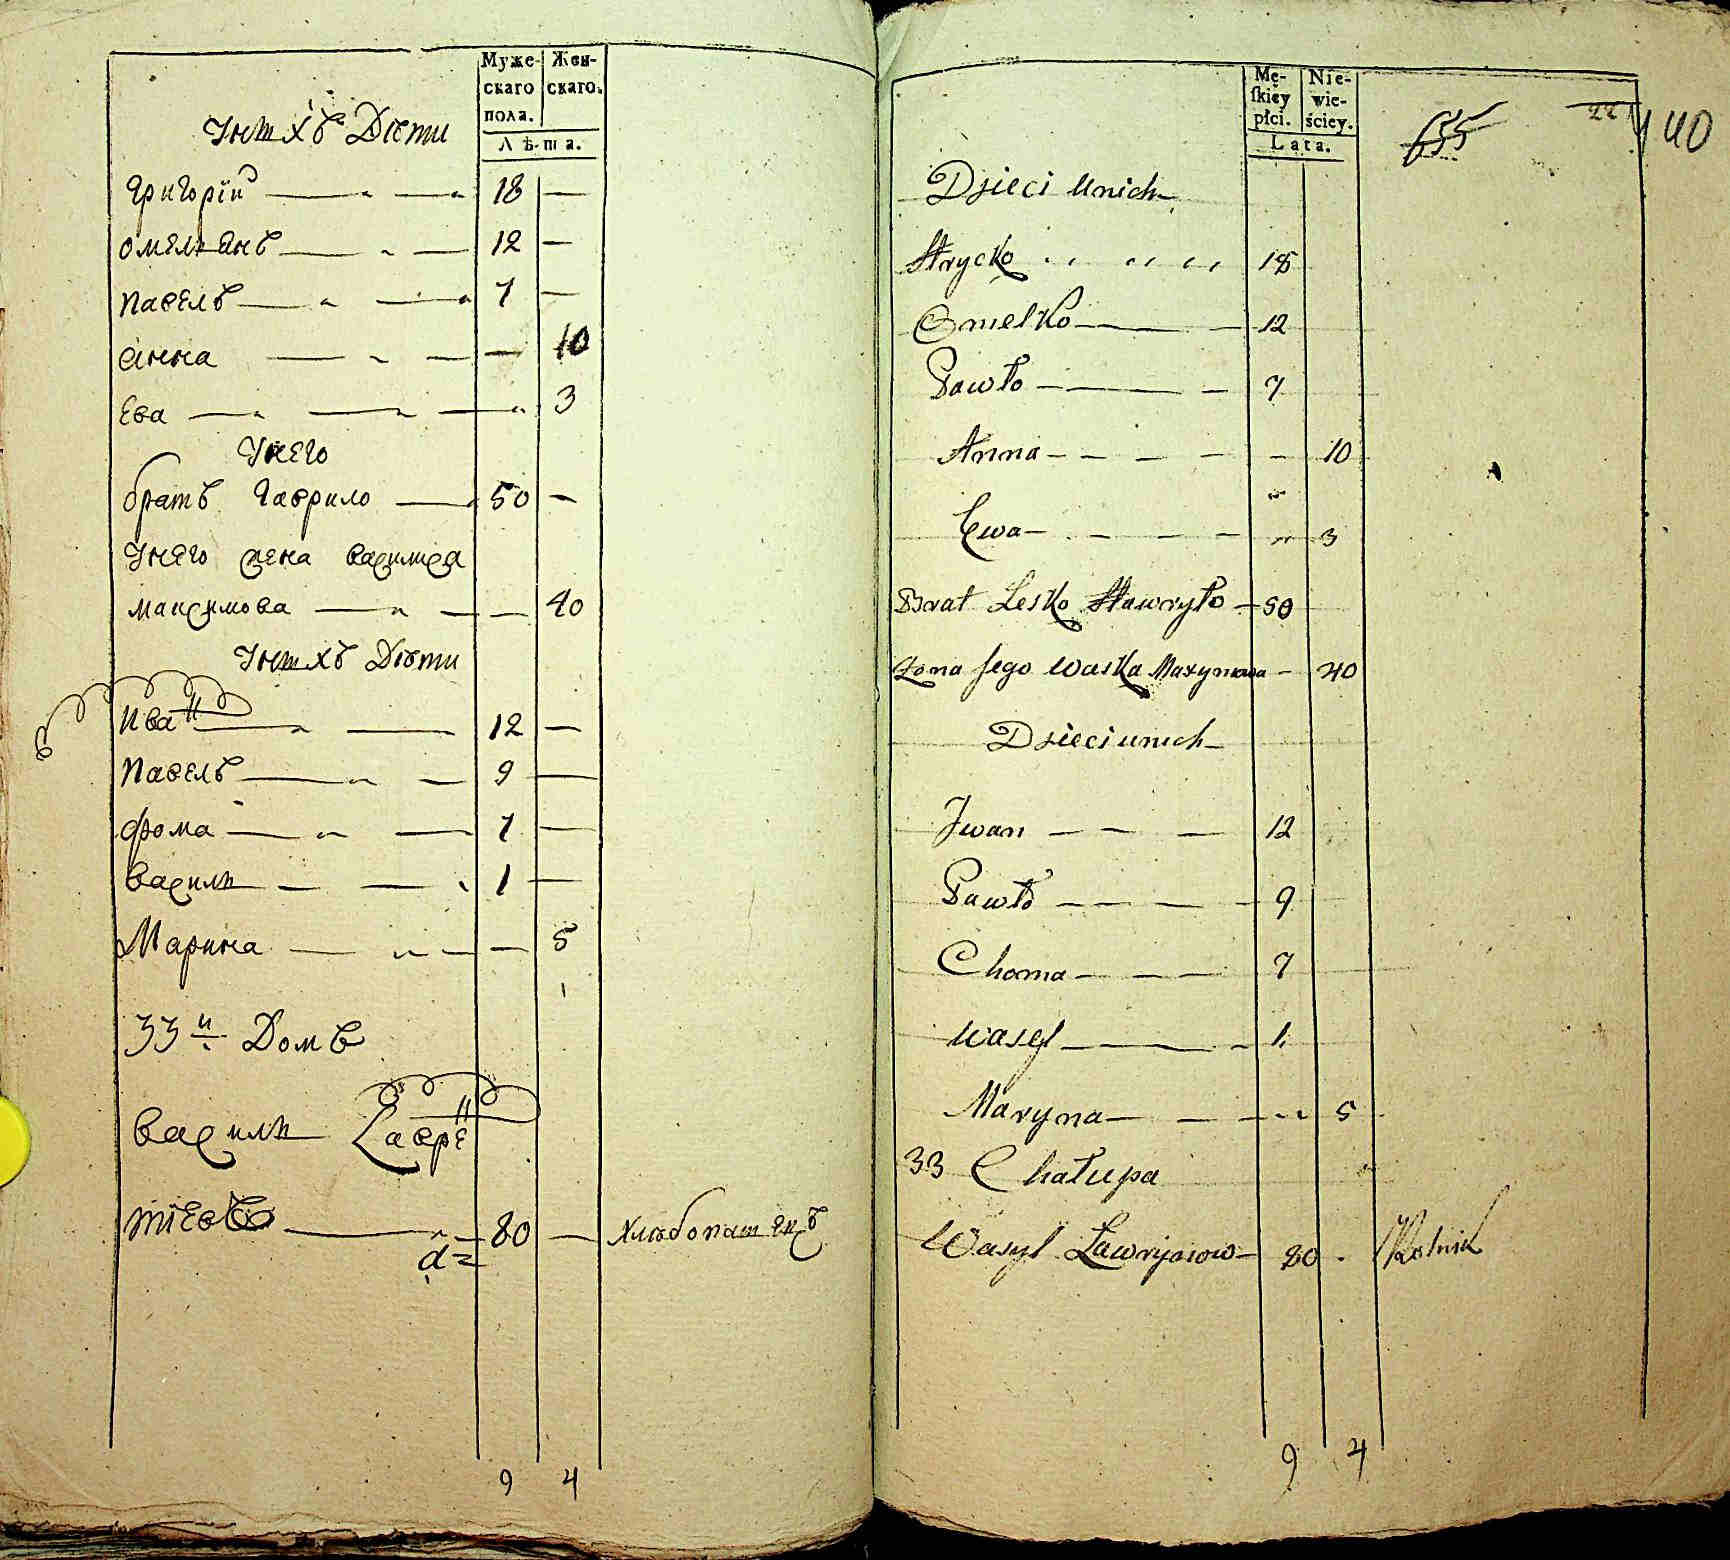 Муже-
скаго
пола.
Жен-
скаго.
Лѣта.
У нихъ Дѣти
Григорiй — 18 —
омельянъ — 12 —
павелъ — 7 —
анна — — 10
Ева — 3
У него
братъ Гаврило — 50 —
У него жена василиса
максимова — — 40
У нихъ Дѣти
Иванъ — 12 —
Павелъ — 9 —
фома — 7 —
васили — 1 —
Марина — — 5
33й Домъ
васили Лавре
нтiевъ — 80 — Хлѣбопашецъ
9 4
Mę-
ſkiey
płci.
Nie-
wie-
ściey.
Lata.
655
22
140
Dzieci Unich
Hrycko 18
Omelko — 12
Pawło — 7
Anna — — 10
Ewa — 3
Brat Lesko Hawryło — 50
Zona Jego Waska Maxymowa — 40
Dzieci unich
Jwan — 12
Pawło — 9
Choma — 7
Wasyl — 1
Maryna — 5
33 Chałupa
Wasyl Ławryniow — 80 Rolnik
9 4